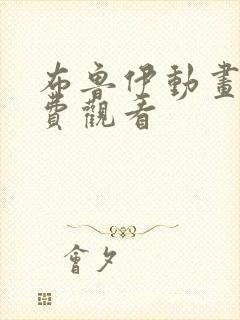 布魯伊動畫
費觀看
會夕